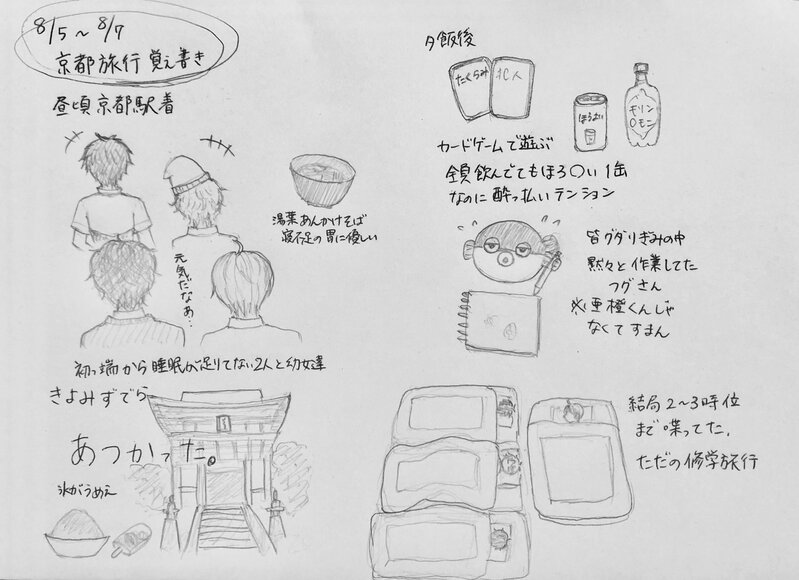 8/5～8/7
京都旅行覚え書き
昼頃京都駅着
湯葉あんかけそば
寝不足の胃に優しい
元気だなあ…
初っ端から睡眠が足りてない2人と幼女達
きよみずでら
あつかった。
氷がうめえ
夕飯後
たくらみ
犯人
ほろよい
キリン
〇モン
カードゲームで遊ぶ
全員飲んでてもほろ〇い1缶
なのに酔っ払いテンション
皆グダりぎみの中
黙々と作業してた
フグさん
※亜橙くんじゃ
なくてすまん
結局2～3時位
まで喋ってた。
ただの修学旅行